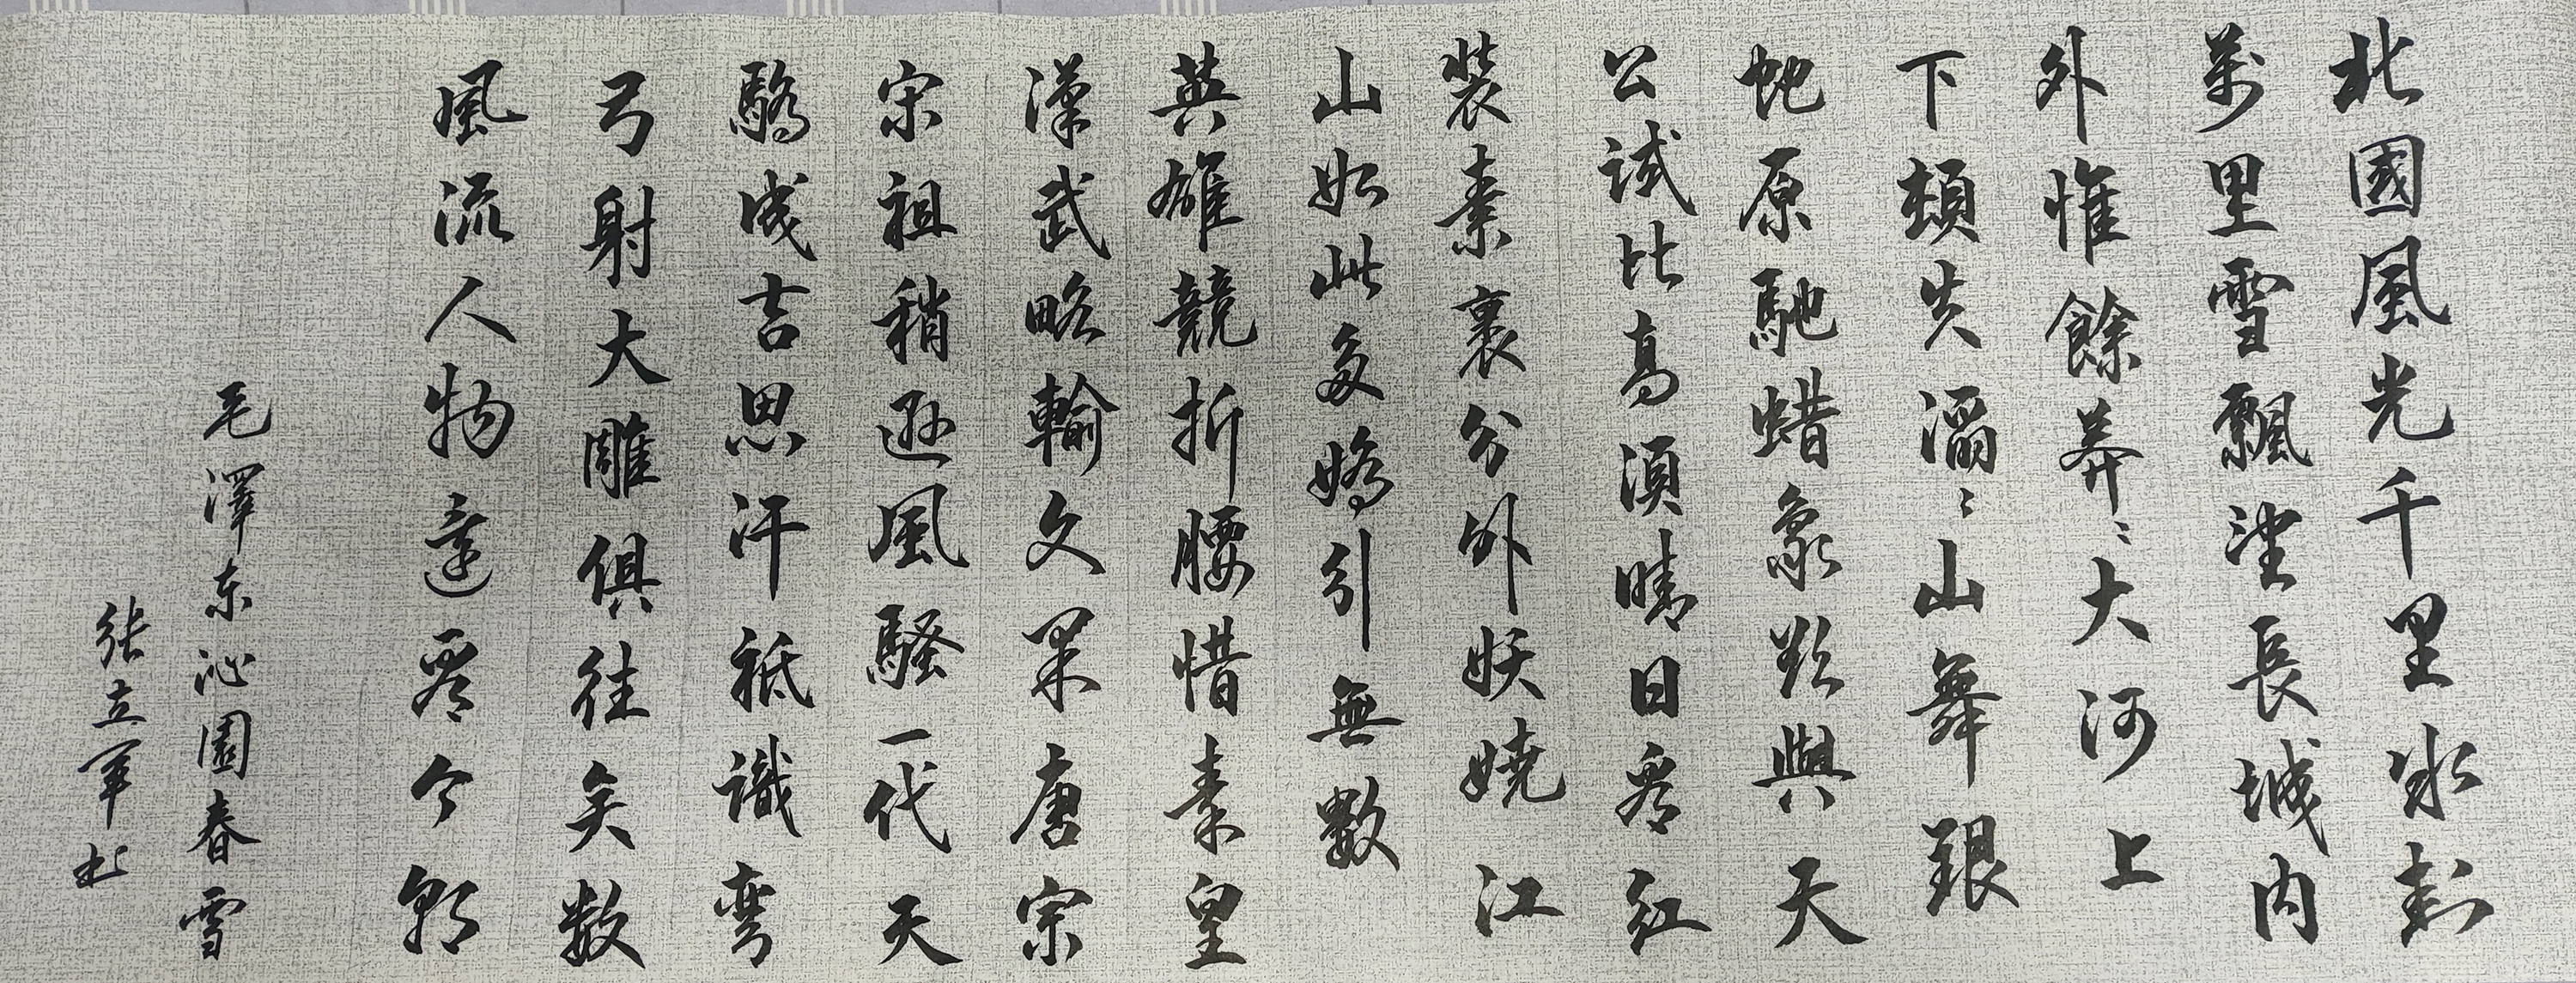 北國風光千里冰封
萬里雪飄望長城内
外惟餘莽〻大河上
下頓失滔〻山舞銀
蛇原馳蜡象欲與天
公試比高須晴日看紅
裝素裹分外妖嬈江
山如此多嬌引無數
英雄競折腰惜秦皇
漢武略輸文采唐宗
宋祖稍遜風騷一代天
驕成吉思汗祗識弯
弓射大雕俱往矣数
風流人物還看今朝
毛澤东沁園春雪
张立军书